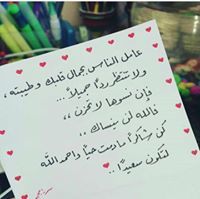 عامل الناس بجمال قلبك وطيبته ،
ولا تنتظر ردًا جميلاً ...
فإن نسوها لا تحزن ،،
فالله لن ينساك ،،
كن شاكرًا ما دمت حيًا واحمد الله
لتكون سعيدًا ..